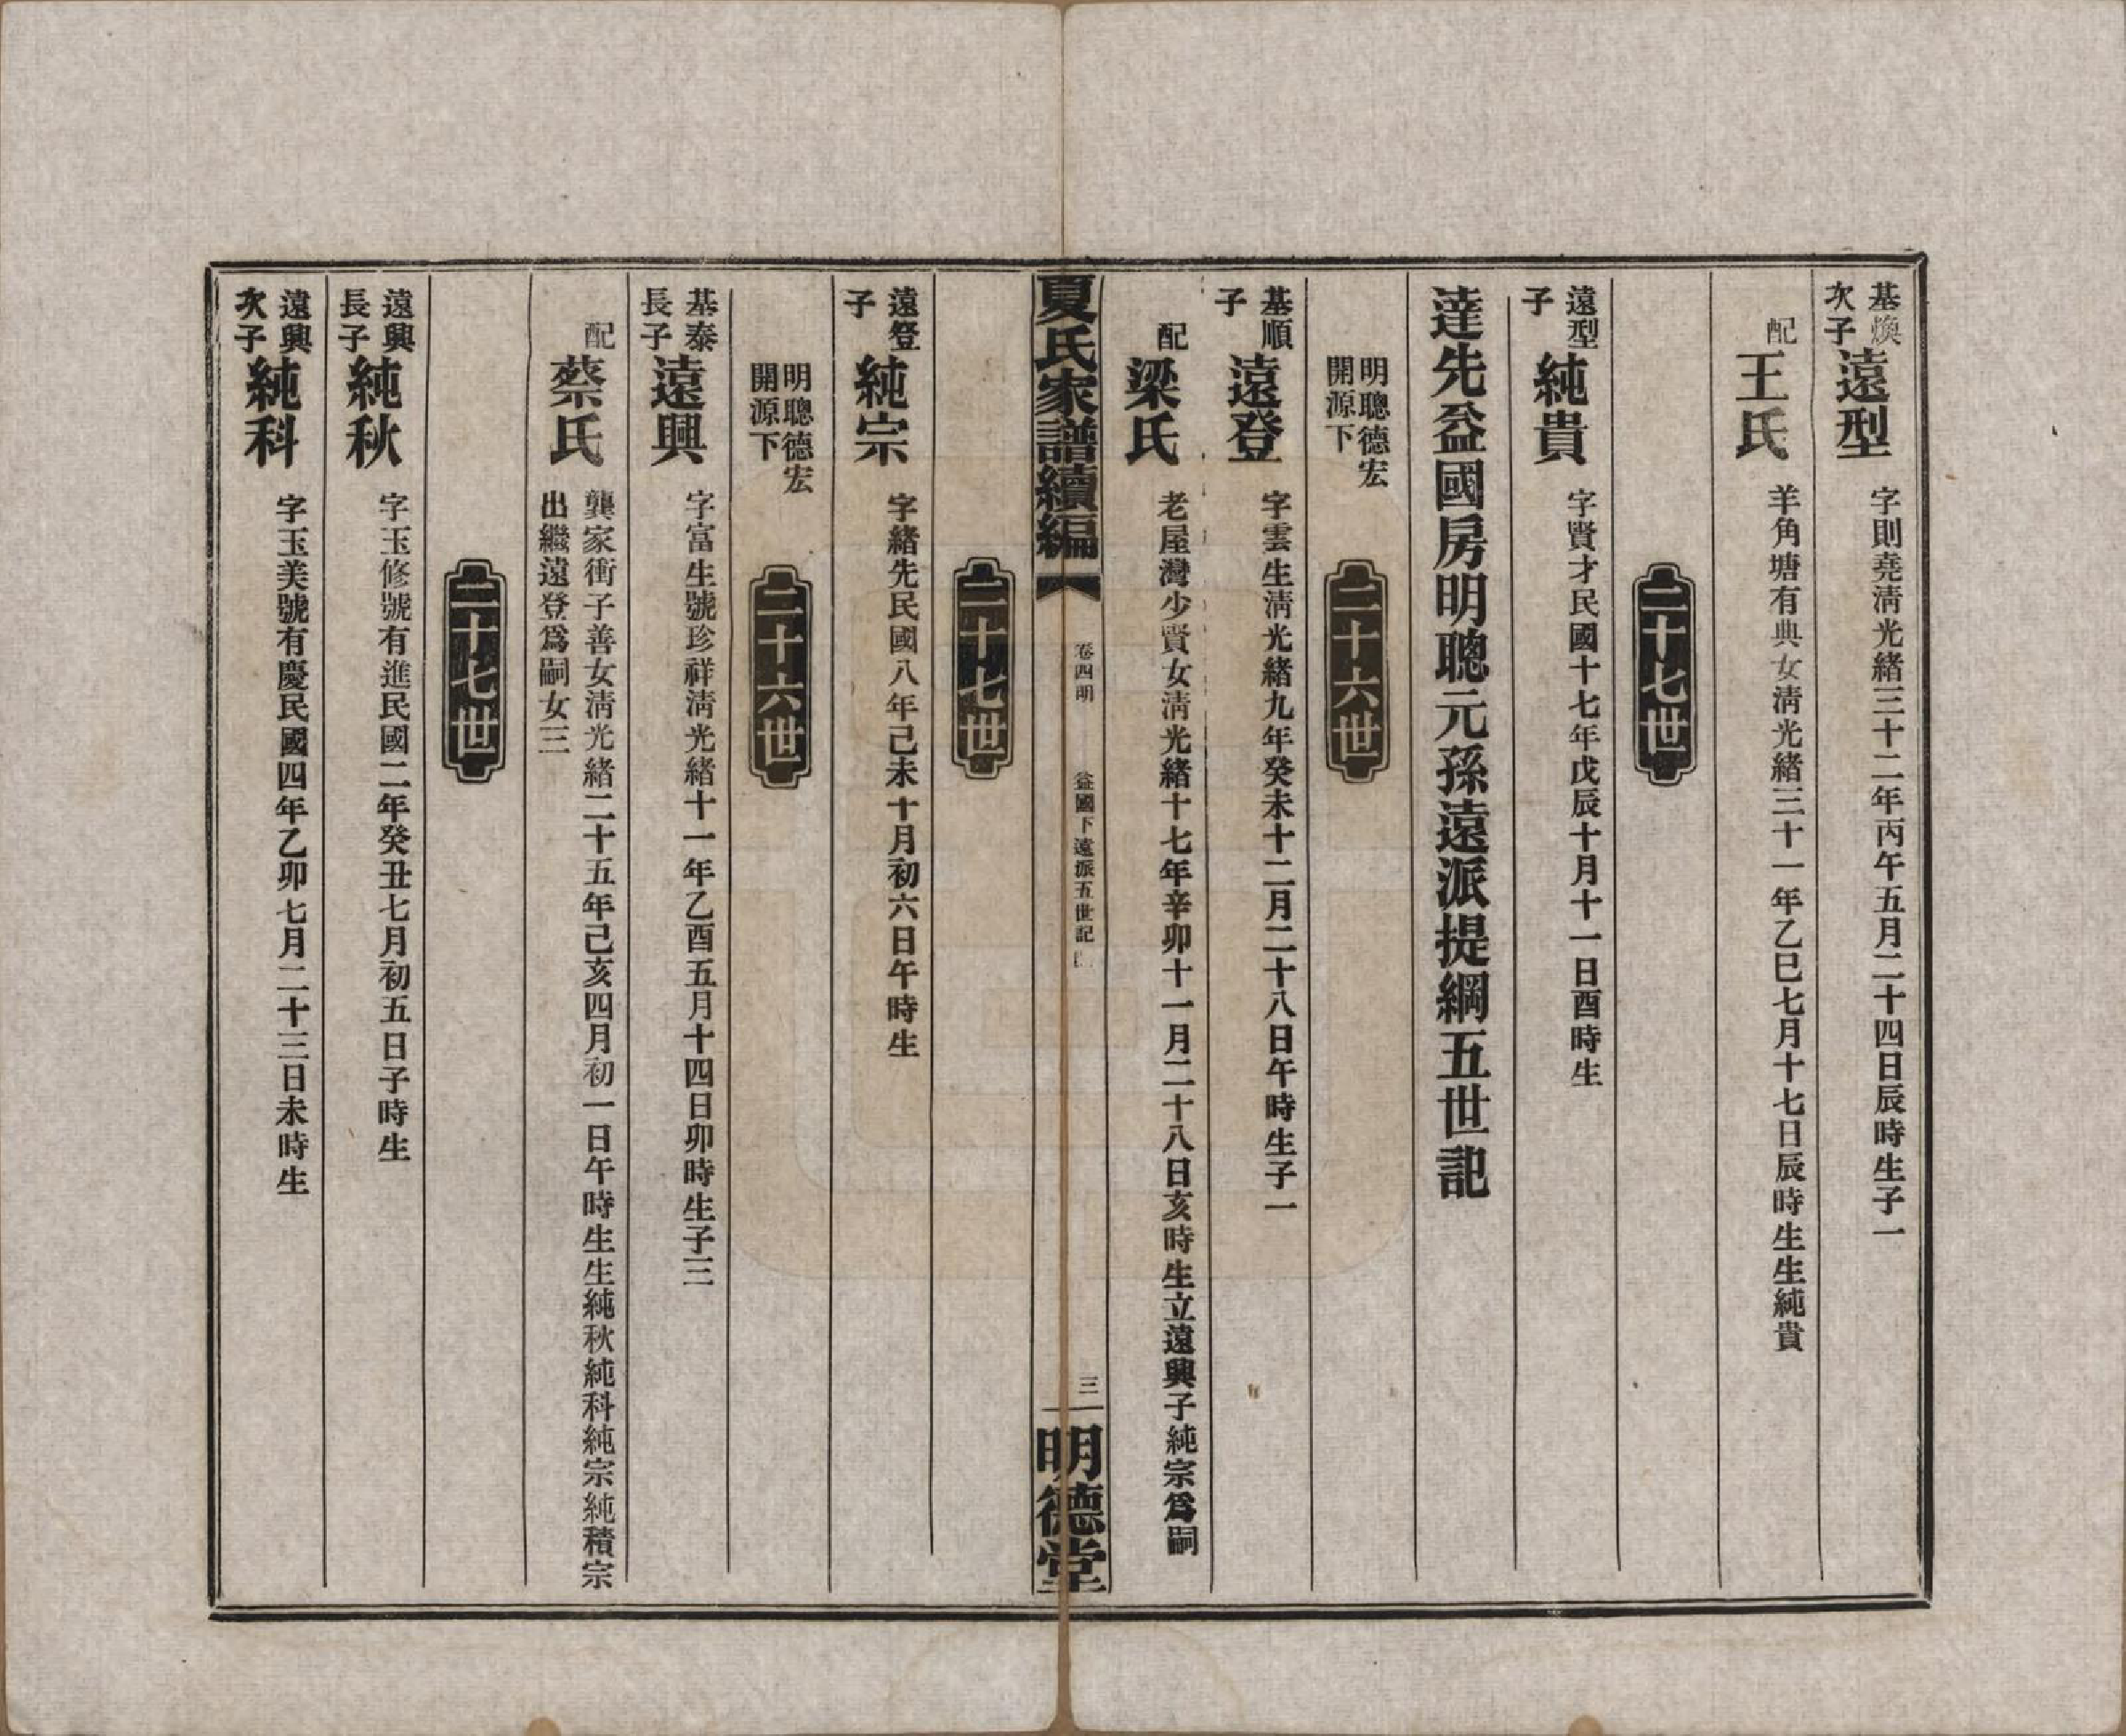 基煥次子 遠型 字則堯淸光緖三十二年丙午五月二十四日辰時生子一
配 王氏 羊角塘有典女淸光緖三十一年乙巳七月十七日辰時生生純貴
二十七世
遠型子 純貴 字賢才民國十七年戊辰十月十一日酉時生
達先益國房明聰元孫遠派提綱五世記
明聰德宏開源下 二十六世
基順子 遠登 字雲生淸光緖九年癸未十二月二十八日午時生子一
配 梁氏 老屋灣少賢女淸光緖十七年辛卯十一月二十八日亥時生立遠興子純宗爲嗣
夏氏家譜續編 卷四明 益國下遠派五世記 三 明德堂
二十七世
遠登子 純宗 字緒先民國八年己未十月初六日午時生
明聰德宏開源下 二十六世
基泰長子 遠興 字富生號珍祥淸光緖十一年乙酉五月十四日卯時生子三
配 蔡氏 龔家衝子善女淸光緖二十五年己亥四月初一日午時生生純秋純科純宗純積宗
出繼遠登爲嗣女三
二十七世
遠興長子 純秋 字玉修號有進民國二年癸丑七月初五日子時生
遠興次子 純科 字玉美號有慶民國四年乙卯七月二十三日未時生